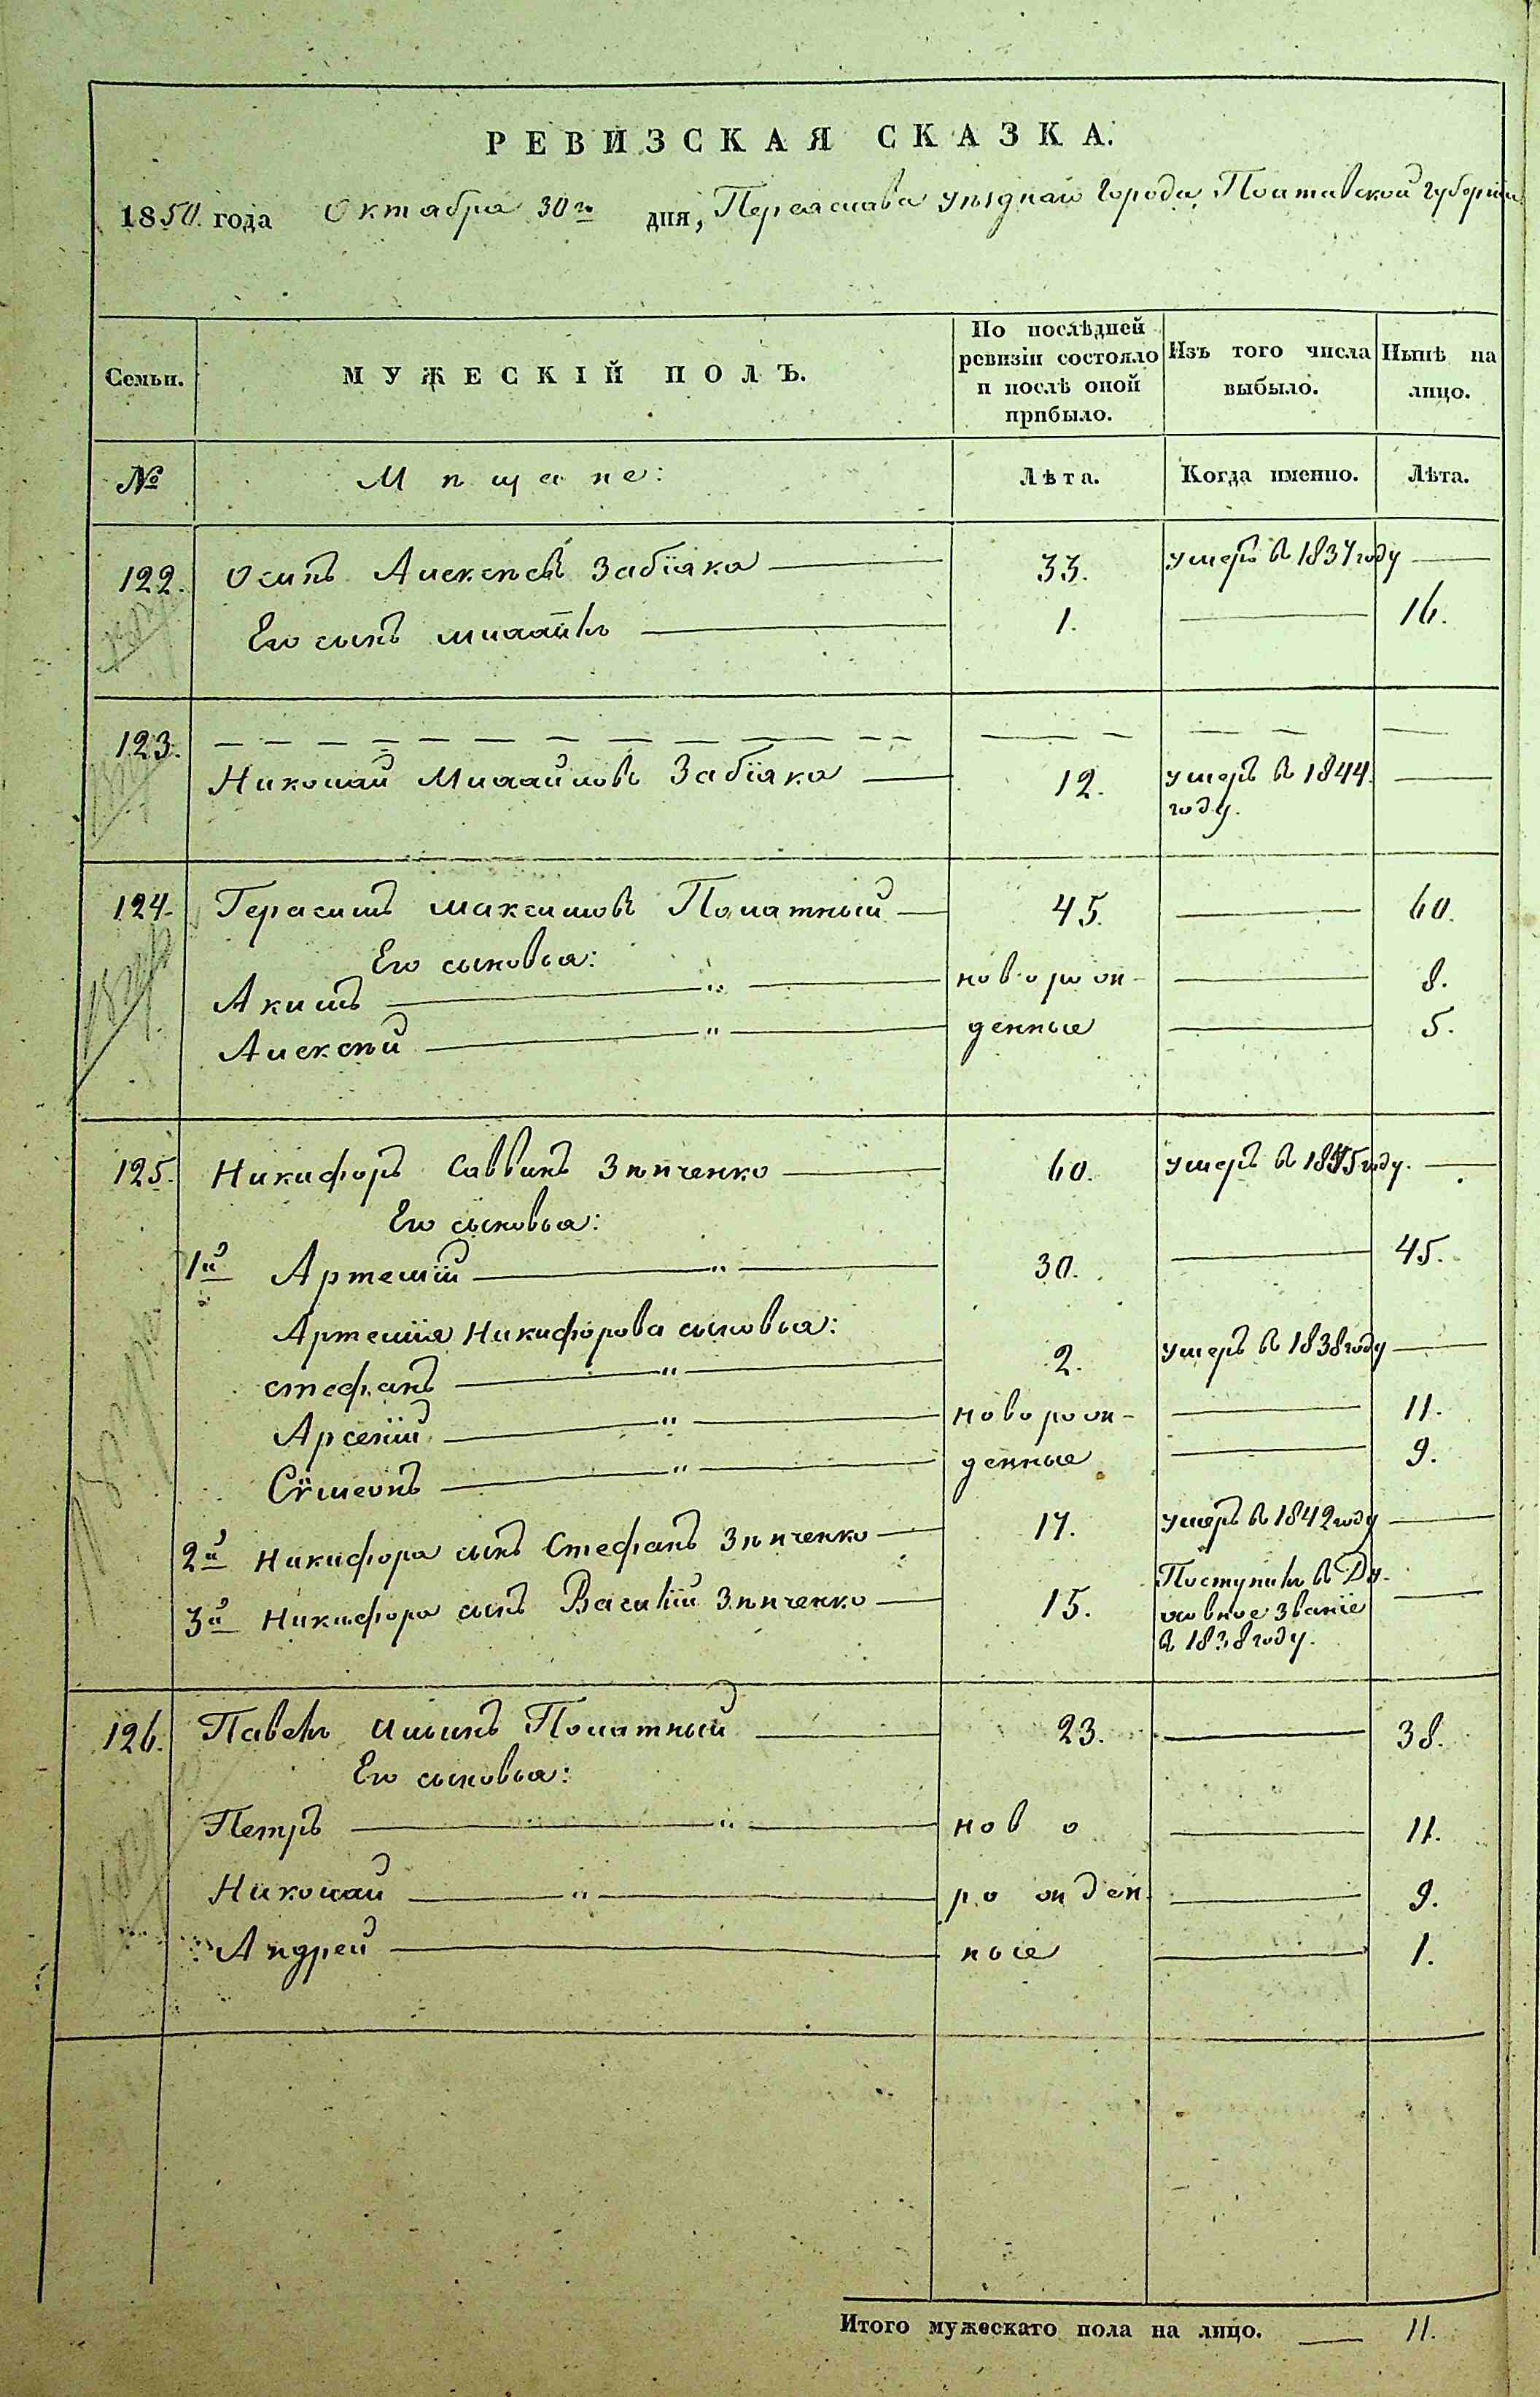 РЕВИЗСКАЯ СКАЗКА.
1850 года Октября 30го дня, Переяслава уѣзднаго города, Полтавской губерніи
Семьи.
МУЖЕСКІЙ ПОЛЪ.
По послѣдней ревизіи состояло и послѣ оной прибыло.
Изъ того числа выбыло.
Нынѣ на лицо.
№ Мѣщане: Лѣта. Когда именно. Лѣта.
122. Осипъ Алексѣевъ Забіяка 33. умеръ въ 1837 году
Его сынъ михаилъ 1. 16.
123.
Николай Михайловъ Забіяка 12. умеръ въ 1844.
году.
124. Герасимъ максимовъ Палатный 45. 60.
Его сыновья:
Акимъ " новорож- 8.
Алексѣй " денные 5.
125. Никифоръ Саввинъ Зѣнченко 60. умеръ въ 1845 году.
Его сыновья:
1й Артемій " 30. 45.
Артемія Никифорова сыновья:
стефанъ " 2. умеръ въ 1838 году
Арсеній " новорож- 11.
Сѵмеонъ " денные 9.
2й Никифора сынъ Стефанъ Зѣнченко 17. умеръ въ 1842 году
3й Никифора сынъ Василій Зѣнченко 15. Поступилъ въ Ду-
ховное званіе
въ 1838 году.
126. Павелъ Ильинъ Полатный 23. 38.
Его сыновья:
Петръ " ново 11.
Николай " рожден- 9.
Андрей ные 1.
Итого мужескаго пола на лицо. 11.